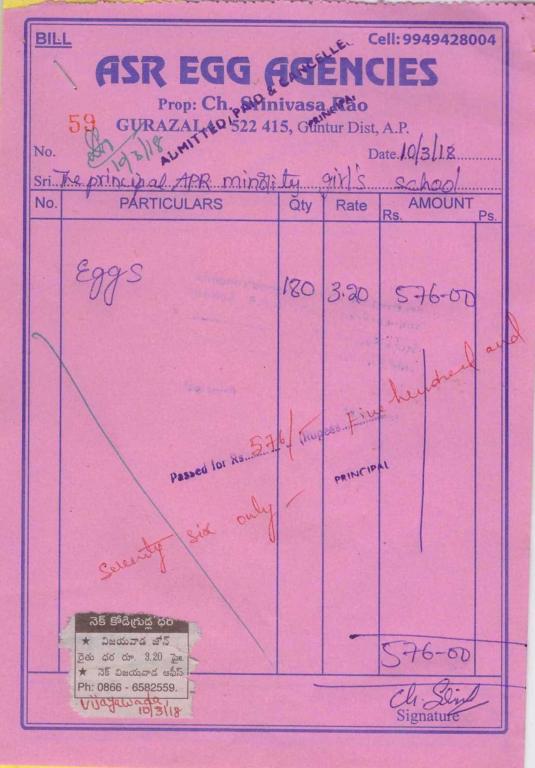 BILL
Cell:9949428004
ASR EGG AGENCIES
Prop: Ch. Srinivasa Rao
GURAZALA - 522 415, Guntur Dist, A.P.
ADMITTED, PAID & CANCELLE
PRINCIPAL
59
No.
10/3/18
Date 10/3/18
Sri The principal APR minority girl's school
No. PARTICULARS Qty Rate AMOUNT
Rs. Ps.
Eggs 180 3.20 576-00
Passed for Rs. 576/- (Rupees Five hundred and
Seventy six only -
PRINCIPAL
నెక్ కోడిగ్రుడ్ల ధర
★ విజయవాడ జోన్
రైతు ధర రూ. 3.20 పై.
★ నెక్ విజయవాడ ఆఫీస్
Ph: 0866 - 6582559.
Vijayewada
10/3/18
576-00
Signature